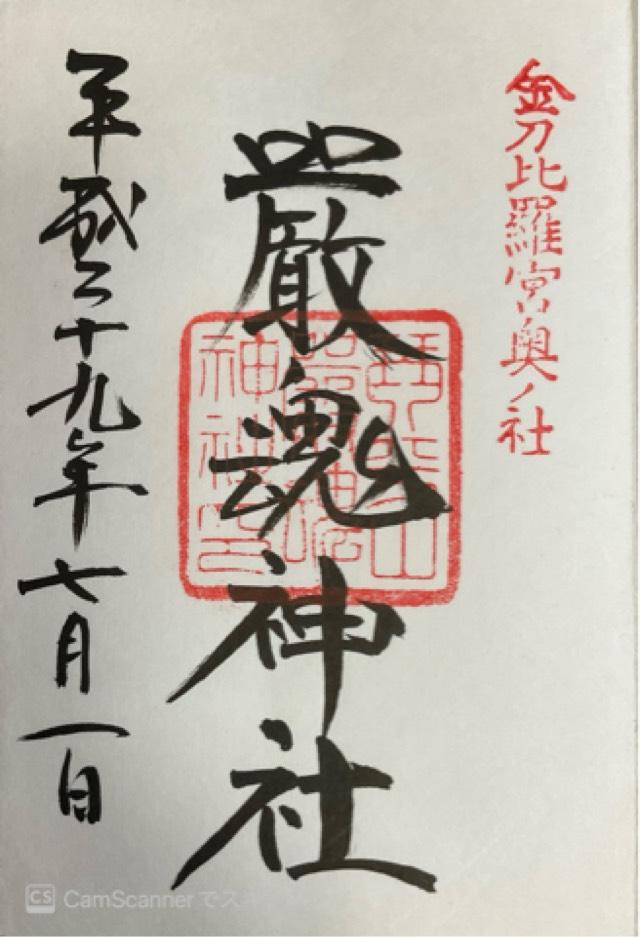 金刀比羅宮奥ノ社
嚴魂神社
平成二十九年七月一日
CS CamScannerでス